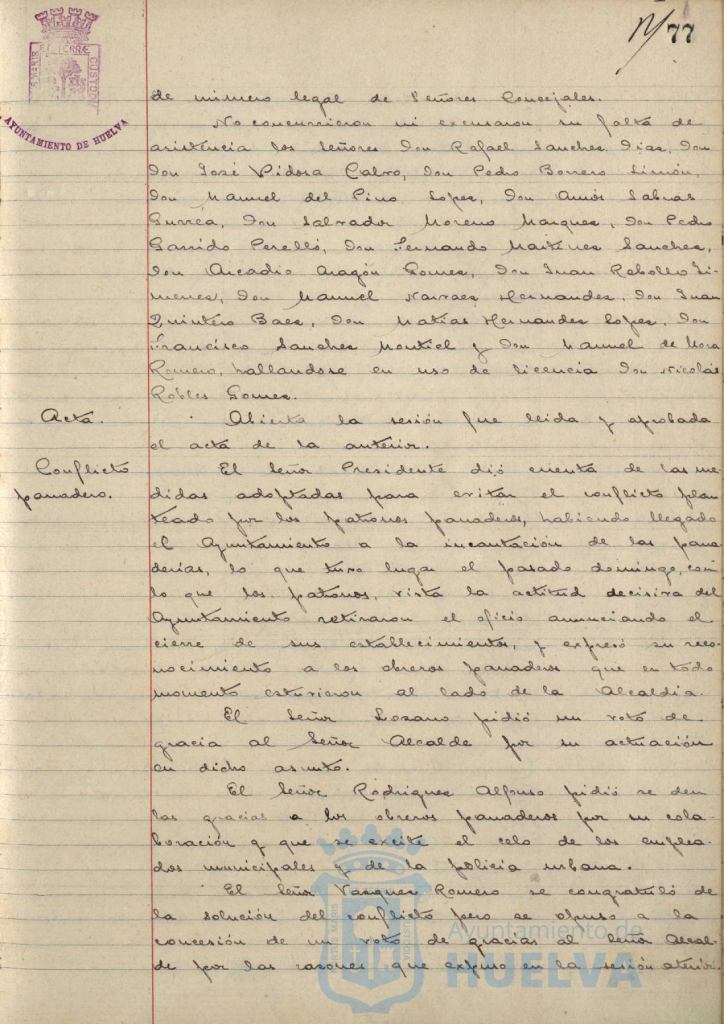 77
AYUNTAMIENTO DE HUELVA
de número legal de Señores Concejales.
No concurrieron ni excusaron su falta de
asistencia los Señores Don Rafael Sanchez Diaz, Don
Don José Pidosa Calvo, Don Pedro Borrero Limón,
Don Manuel del Pino Lopez, Don Amós Sabrás
Gurrea, Don Salvador Moreno Marquez, Don Pedro
Garrido Perelló, Don Fernando Martinez Sanchez,
Don Arcadio Aragón Gomez, Don Juan Rebollo Ji-
menez, Don Manuel Narvaez Hernandez, Don Juan
Quintero Baez, Don Matias Hernandez Lopez, Don
Francisco Sanchez Montiel y Don Manuel de Mora
Romero, hallandose en uso de licencia Don Nicolás
Robles Gomez.
Acta.
Abierta la sesión fue leida y aprobada
el acta de la anterior.
Conflicto
panadero.
El Señor Presidente dió cuenta de las me-
didas adoptadas para evitar el conflicto plan
teado por los patronos panaderos, habiendo llegado
el Ayuntamiento a la incautación de las pana
derias, lo que tuvo lugar el pasado domingo, con
lo que los patronos, vista la actitud decisiva del
Ayuntamiento retiraron el oficio anunciando el
cierre de sus establecimientos, y expresó su reco-
nocimiento a los obreros panaderos que en todo
momento estuvieron al lado de la Alcaldia.
El Señor Lozano pidió un voto de
gracia al Señor Alcalde por su actuación
en dicho asunto.
El Señor Rodriguez Alfonso pidió se den
las gracias a los obreros panaderos por su cola-
boración y que se excite el celo de los emplea-
dos municipales y de la policia urbana.
El Señor Vazquez Romero se congratuló de
la solución del conflicto pero se opuso a la
concesión de un voto de gracias al Señor Alcal-
de por las razones que expuso en la sesión aterior.
Ayuntamiento de
HUELVA